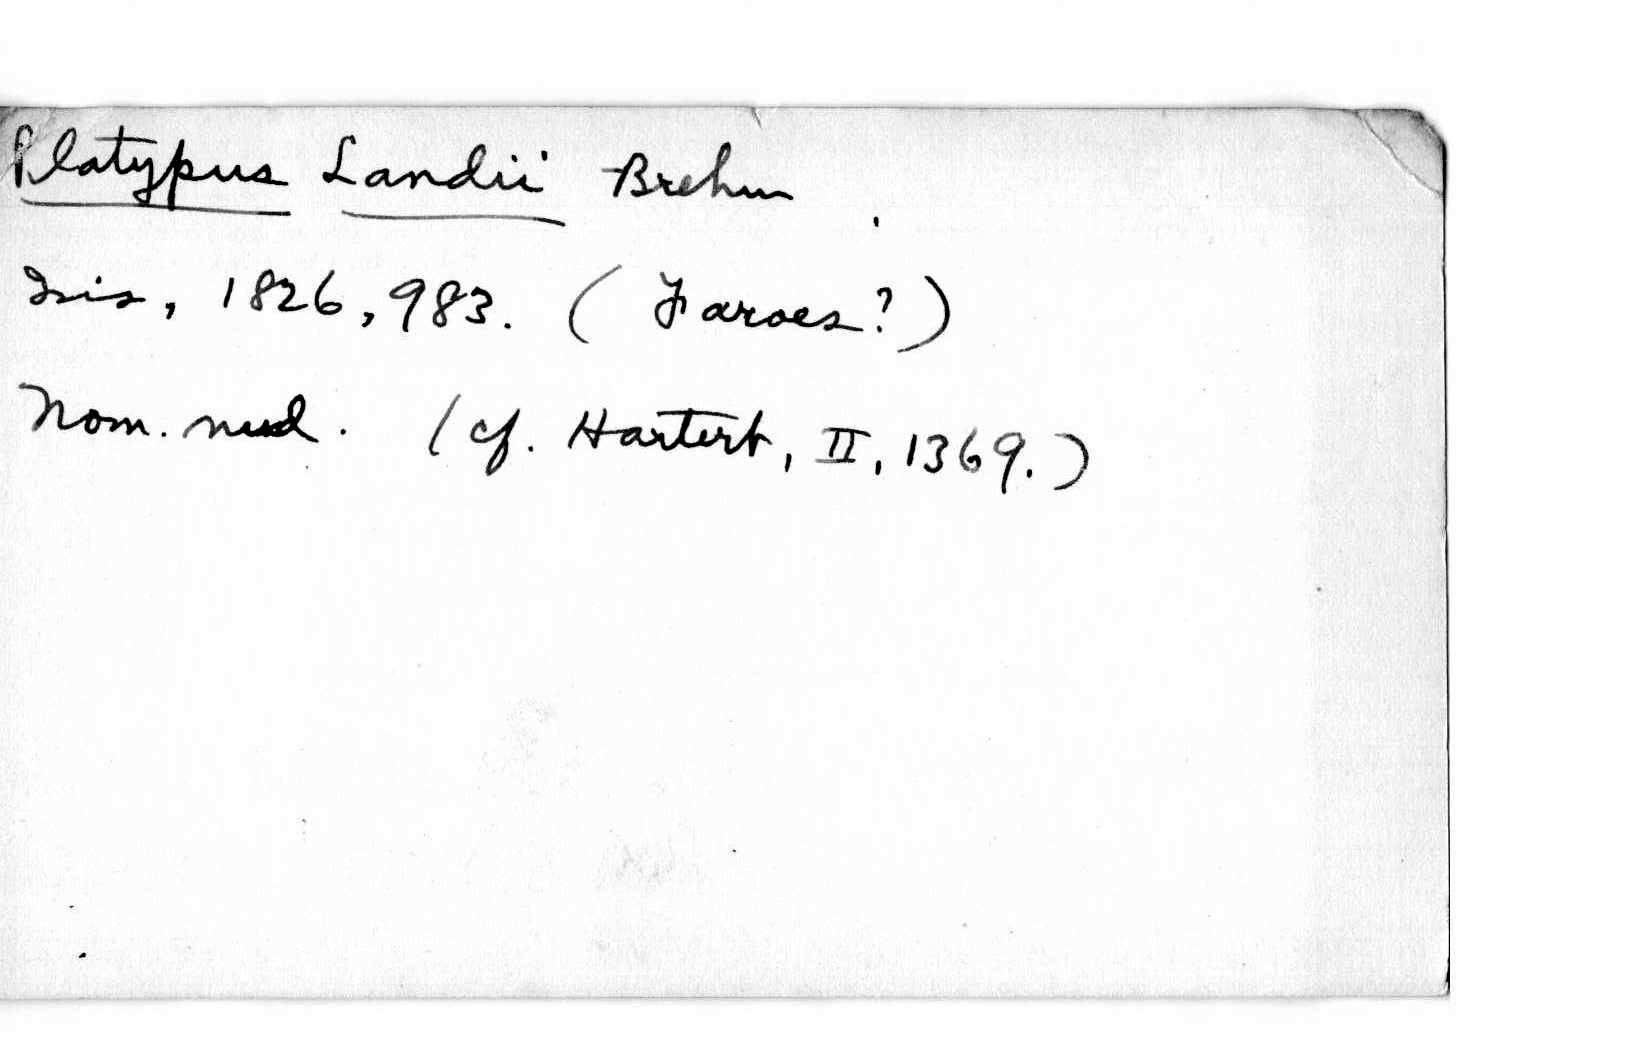 Platypus Landii Brehm
Isis, 1826, 983. (Faroes?)
Nom. nud. (cf. Hartert, II, 1369.)